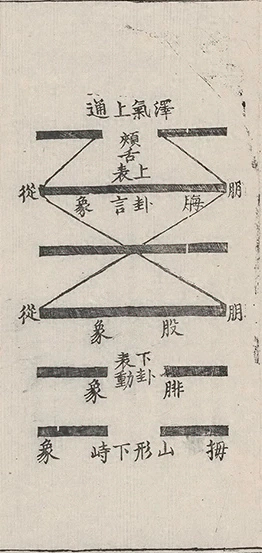 澤氣上通
頰舌
上卦
表言
朋 從
脢 象
朋 從
股 象
下卦
表動
腓 象
拇 山形下峙 象